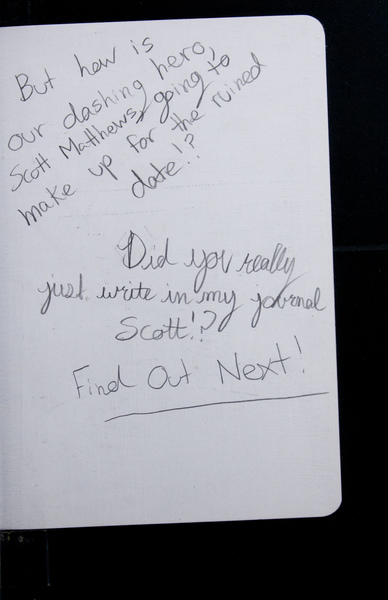 But how is
our dashing hero,
Scott Matthews, going to
make up for the ruined
date!?
Did you really
just write in my journal
Scott!?
Find Out Next!